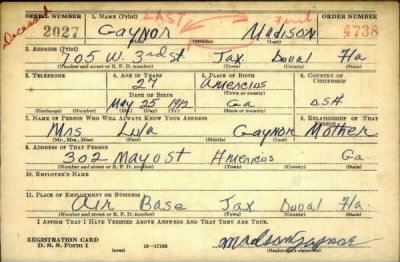 SERIAL NUMBER 1. NAME (Print) LAST First ORDER NUMBER
Deceased
2027 Gaynor Madison 4738
(First) (Middle) (Last)
2. ADDRESS (Print)
705 W. 2nd St Jax Duval Fla
(Number and street or R. F. D. number) (Town) (County) (State)
3. TELEPHONE 4. AGE IN YEARS 5. PLACE OF BIRTH 6. COUNTRY OF CITIZENSHIP
27 Americus
DATE OF BIRTH (Town or county)
May 25 1912 Ga U.S.A
(Exchange) (Number) (Mo.) (Day) (Yr.) (State or country)
7. NAME OF PERSON WHO WILL ALWAYS KNOW YOUR ADDRESS 8. RELATIONSHIP OF THAT PERSON
Mrs Lula Gaynor Mother
(Mr., Mrs., Miss) (First) (Middle) (Last)
9. ADDRESS OF THAT PERSON
302 Mayo St Americus Ga.
(Number and street or R. F. D. number) (Town) (County) (State)
10. EMPLOYER'S NAME
11. PLACE OF EMPLOYMENT OR BUSINESS
Air Base Jax Duval Fla.
(Number and street or R. F. D. number) (Town) (County) (State)
I AFFIRM THAT I HAVE VERIFIED ABOVE ANSWERS AND THAT THEY ARE TRUE.
REGISTRATION CARD
D. S. S. Form 1 (over) 16—17105 Madison Gaynor